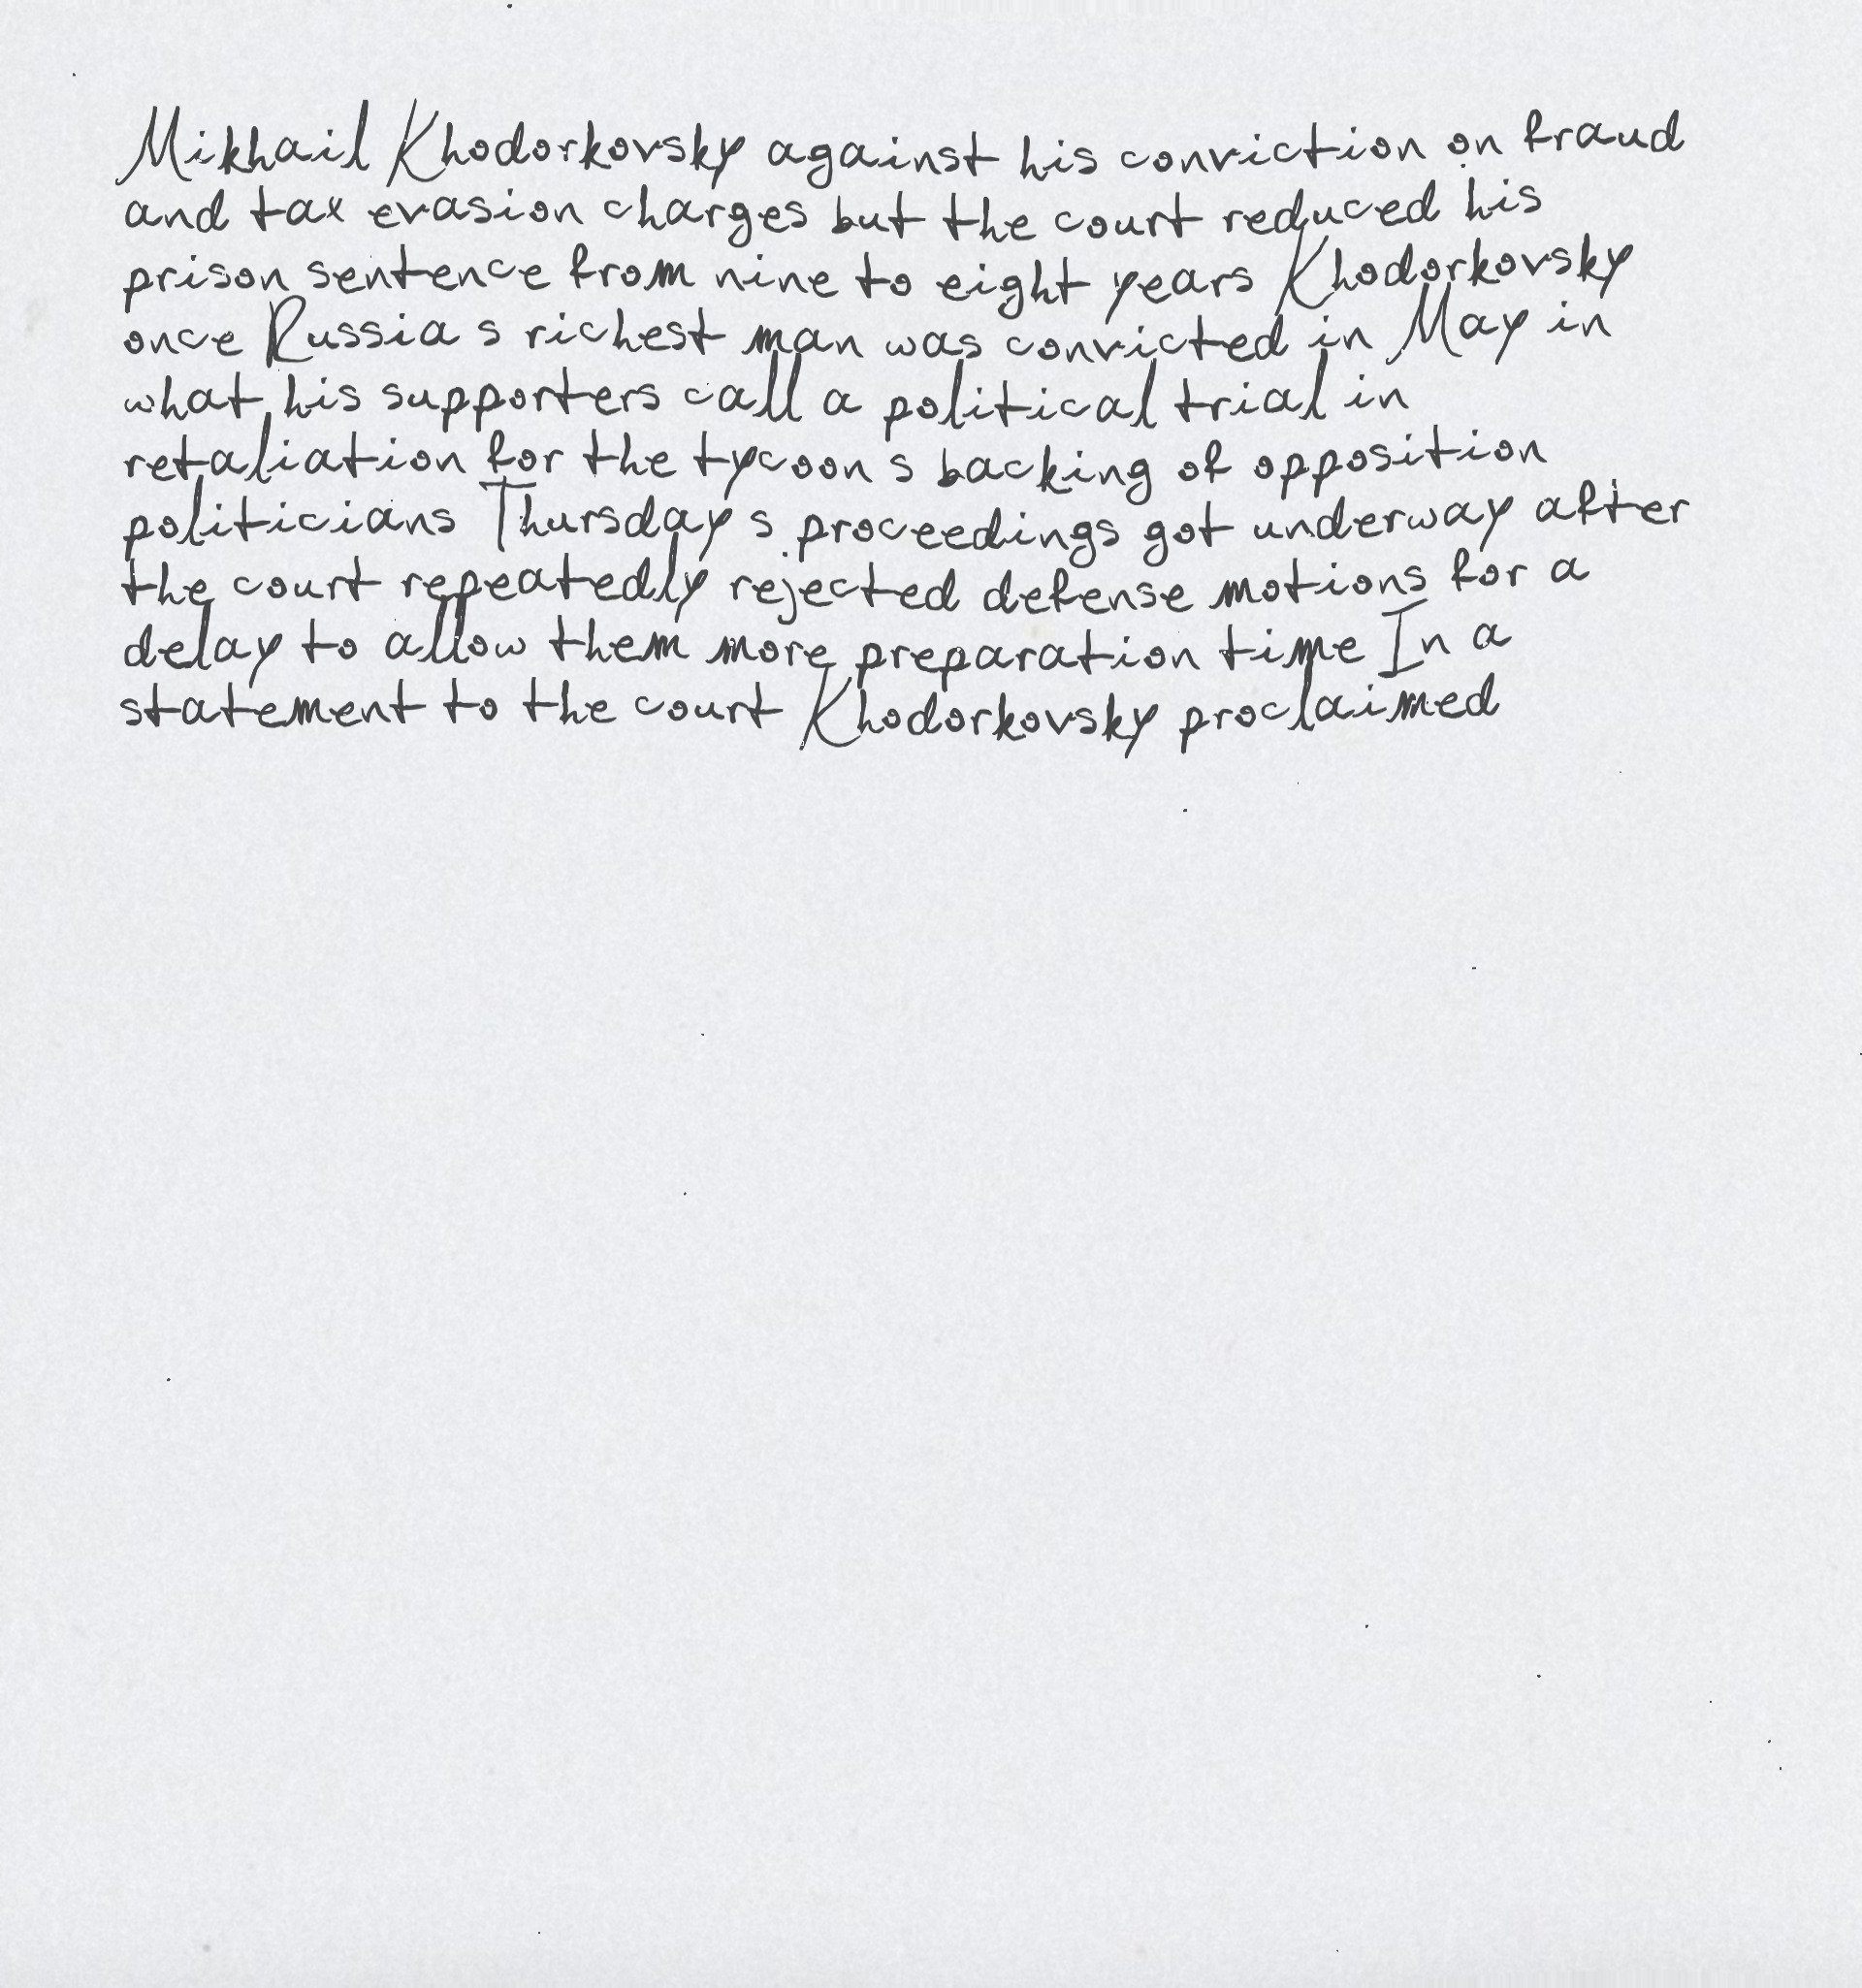 Mikhail Khodorkovsky against his conviction on fraud
and tax evasion charges but the court reduced his
prison sentence from nine to eight years Khodorkovsky
once Russia s richest man was convicted in May in
what his supporters call a political trial in
retaliation for the tycoon s backing of opposition
politicians Thursday s proceedings got underway after
the court repeatedly rejected defense motions for a
delay to allow them more preparation time In a
statement to the court Khodorkovsky proclaimed